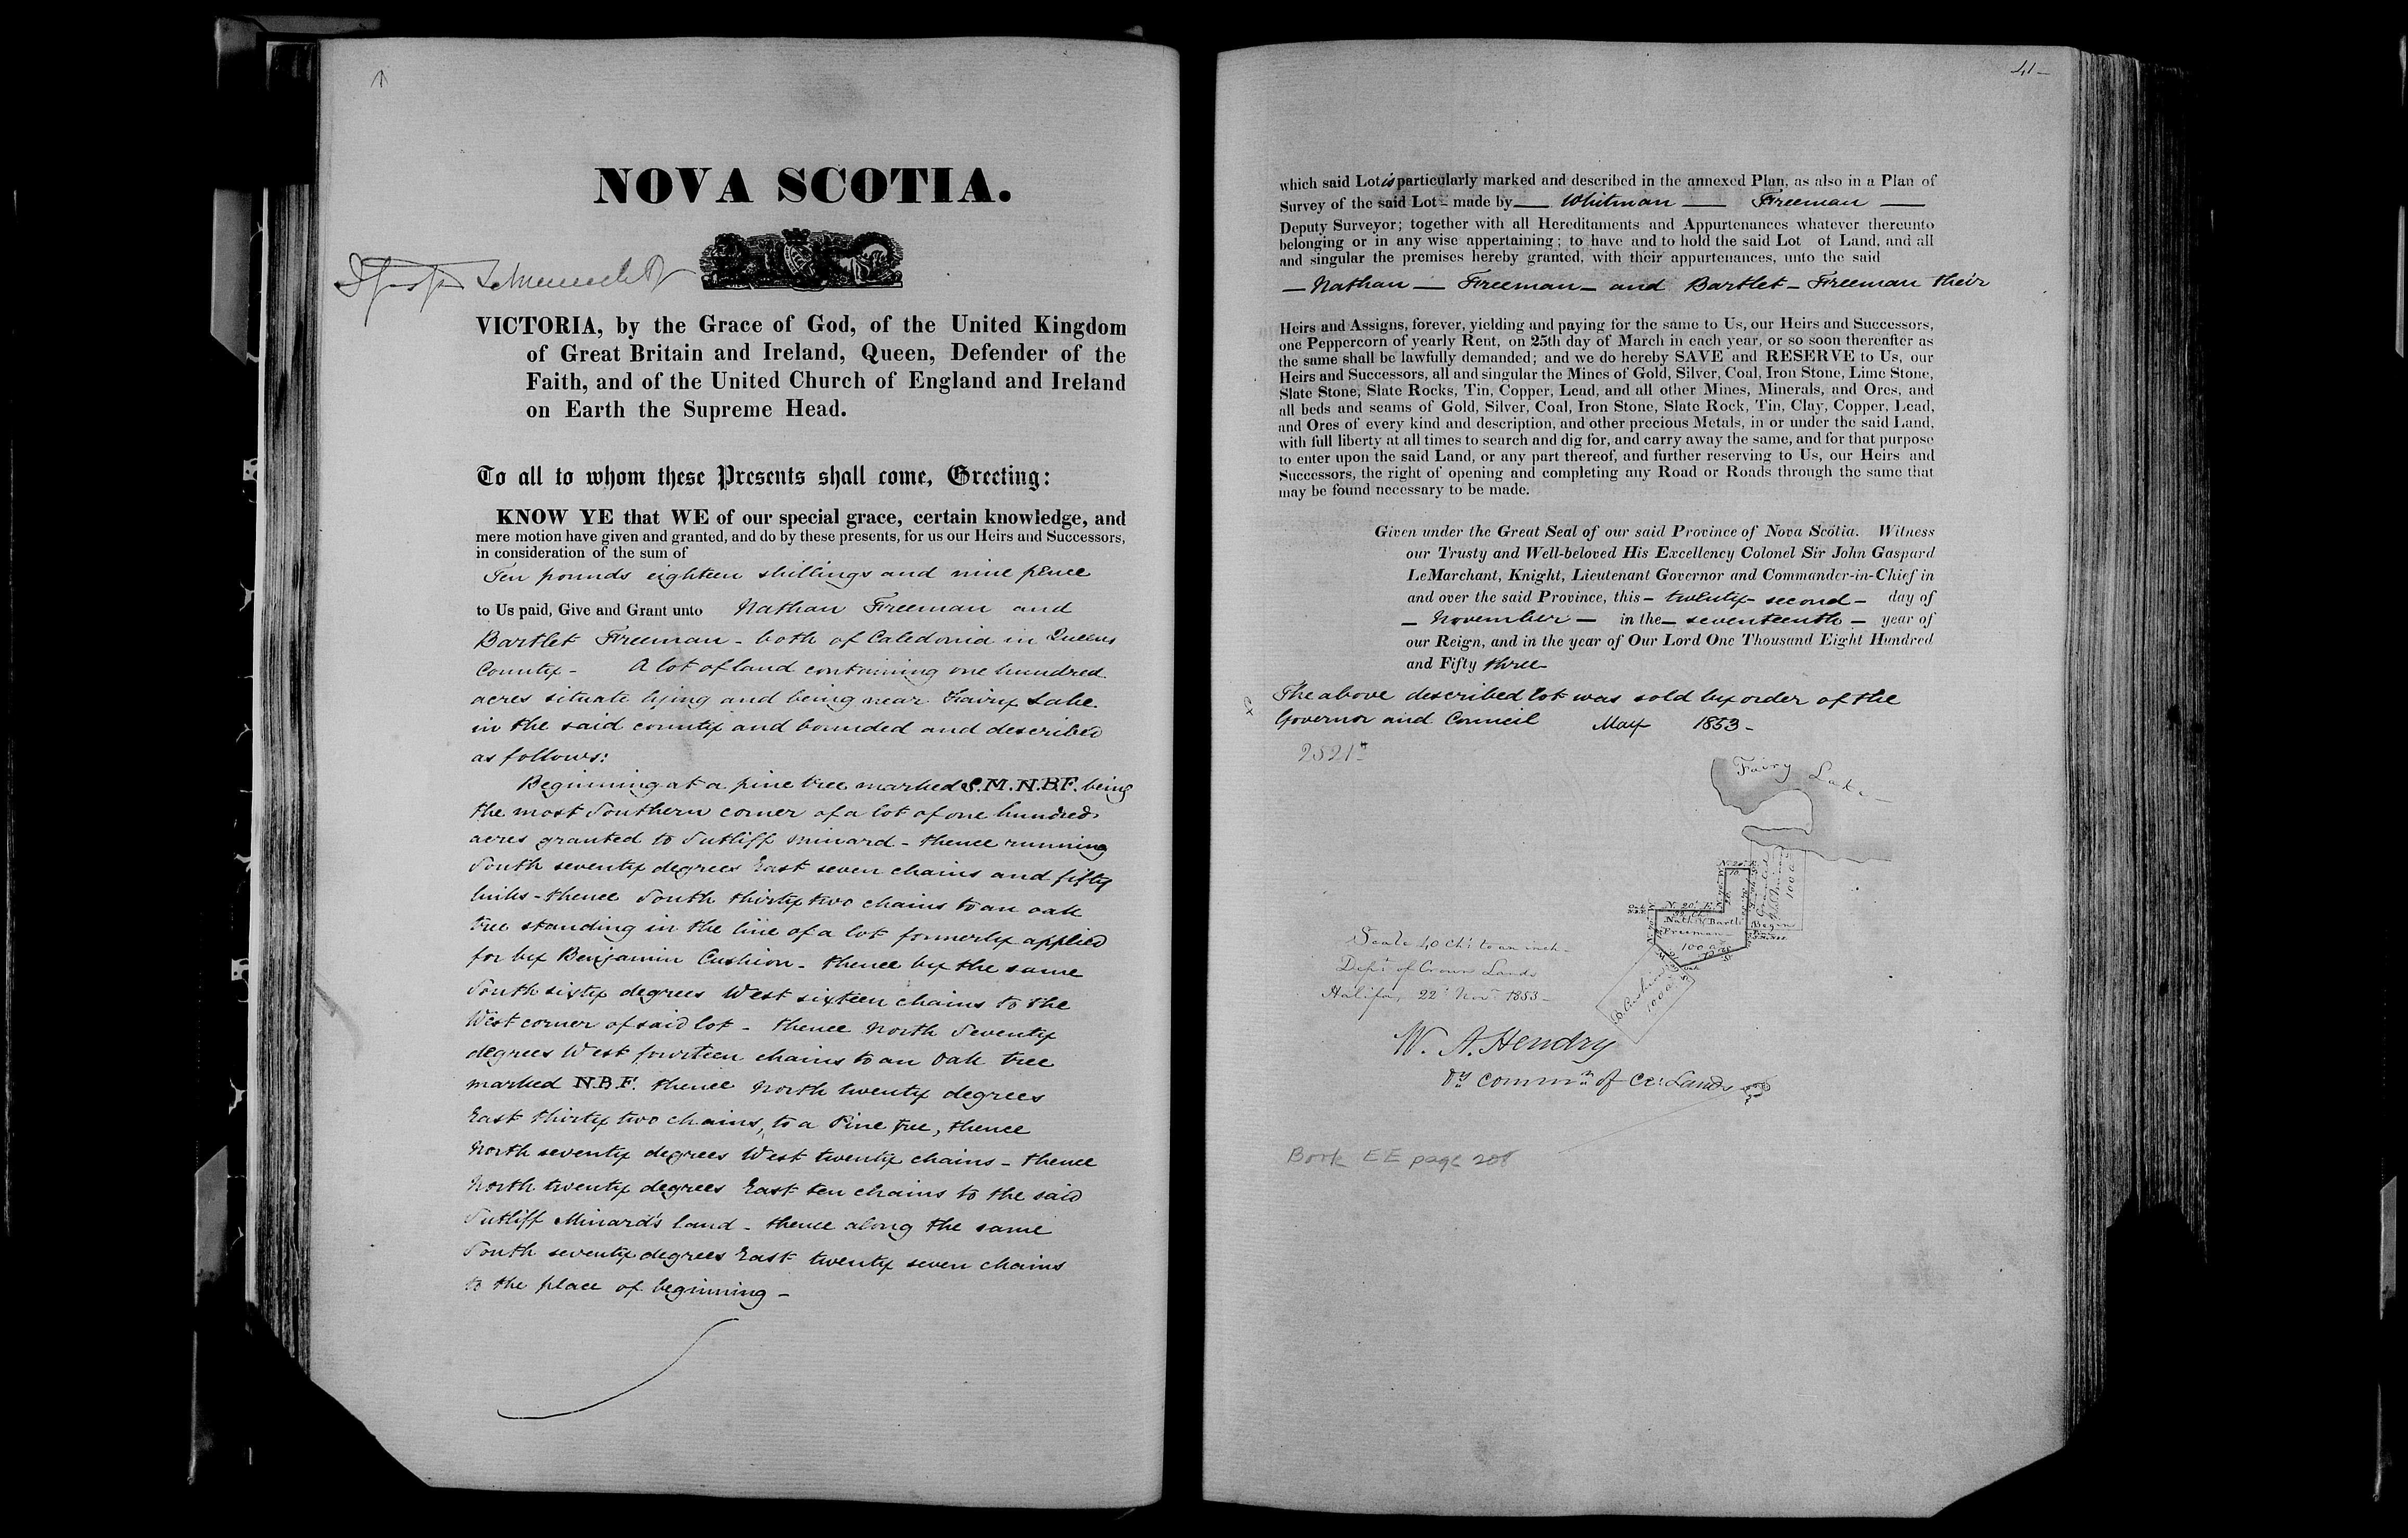 NOVA SCOTIA.
VICTORIA, by the Grace of God, of the United Kingdom
of Great Britain and Ireland, Queen, Defender of the
Faith, and of the United Church of England and Ireland
on Earth the Supreme Head.
To all to whom these Presents shall come, Greeting:
KNOW YE that WE of our special grace, certain knowledge, and
mere motion have given and granted, and do by these presents, for us our Heirs and Successors,
in consideration of the sum of
Ten pounds eighteen shillings and nine pence
to Us paid, Give and Grant unto Nathan Freeman and
Bartlet Freeman - both of Caledonia in Queens
County - A lot of land containing one hundred
acres situate lying and being near Fairy Lake
in the said county and bounded and described
as follows:
Beginning at a pine tree marked S.M.N.B.F. being
the most Southern corner of a lot of one hundred
acres granted to Sutliff Minard - thence running
South seventy degrees East seven chains and fifty
links - thence South thirty two chains to an oak
tree standing in the line of a lot formerly applied
for by Benjamin Cushion - thence by the same
South sixty degrees West sixteen chains to the
West corner of said lot - thence North Seventy
degrees West fourteen chains to an Oak tree
marked N.B.F. thence North twenty degrees
East thirty two chains, to a Pine tree, thence
North seventy degrees West twenty chains - thence
North twenty degrees East ten chains to the said
Sutliff Minard's land - thence along the same
South seventy degrees East twenty seven chains
to the place of beginning -
41-
which said Lot is particularly marked and described in the annexed Plan, as also in a Plan of
Survey of the said Lot - made by — Whitman — Freeman —
Deputy Surveyor; together with all Hereditaments and Appurtenances whatever thereunto
belonging or in any wise appertaining; to have and to hold the said Lot of Land, and all
and singular the premises hereby granted, with their appurtenances, unto the said
— Nathan — Freeman - and Bartlet - Freeman their
Heirs and Assigns, forever, yielding and paying for the same to Us, our Heirs and Successors,
one Peppercorn of yearly Rent, on 25th day of March in each year, or so soon thereafter as
the same shall be lawfully demanded; and we do hereby SAVE and RESERVE to Us, our
Heirs and Successors, all and singular the Mines of Gold, Silver, Coal, Iron Stone, Lime Stone,
Slate Stone, Slate Rocks, Tin, Copper, Lead, and all other Mines, Minerals, and Ores, and
all beds and seams of Gold, Silver, Coal, Iron Stone, Slate Rock, Tin, Clay, Copper, Lead,
and Ores of every kind and description, and other precious Metals, in or under the said Land,
with full liberty at all times to search and dig for, and carry away the same, and for that purpose
to enter upon the said Land, or any part thereof, and further reserving to Us, our Heirs and
Successors, the right of opening and completing any Road or Roads through the same that
may be found necessary to be made.
Given under the Great Seal of our said Province of Nova Scotia. Witness
our Trusty and Well-beloved His Excellency Colonel Sir John Gaspard
LeMarchant, Knight, Lieutenant Governor and Commander-in-Chief in
and over the said Province, this - twenty - second - day of
- November - in the - seventeenth - year of
our Reign, and in the year of Our Lord One Thousand Eight Hundred
and Fifty three
The above described lot was sold by order of the
Governor and Council May 1853 -
2521
Fairy Lake
N. 20° E.
Nath. & Bartt.
Freeman
100 a
Begins
100 a
B. Cushion
100 a
Scale 40 chs to an inch -
Dept of Crown Lands
Halifax 22d Novr 1853 -
W. A. Hendry
Dy Commn of Cr: Lands
Book EE page 208